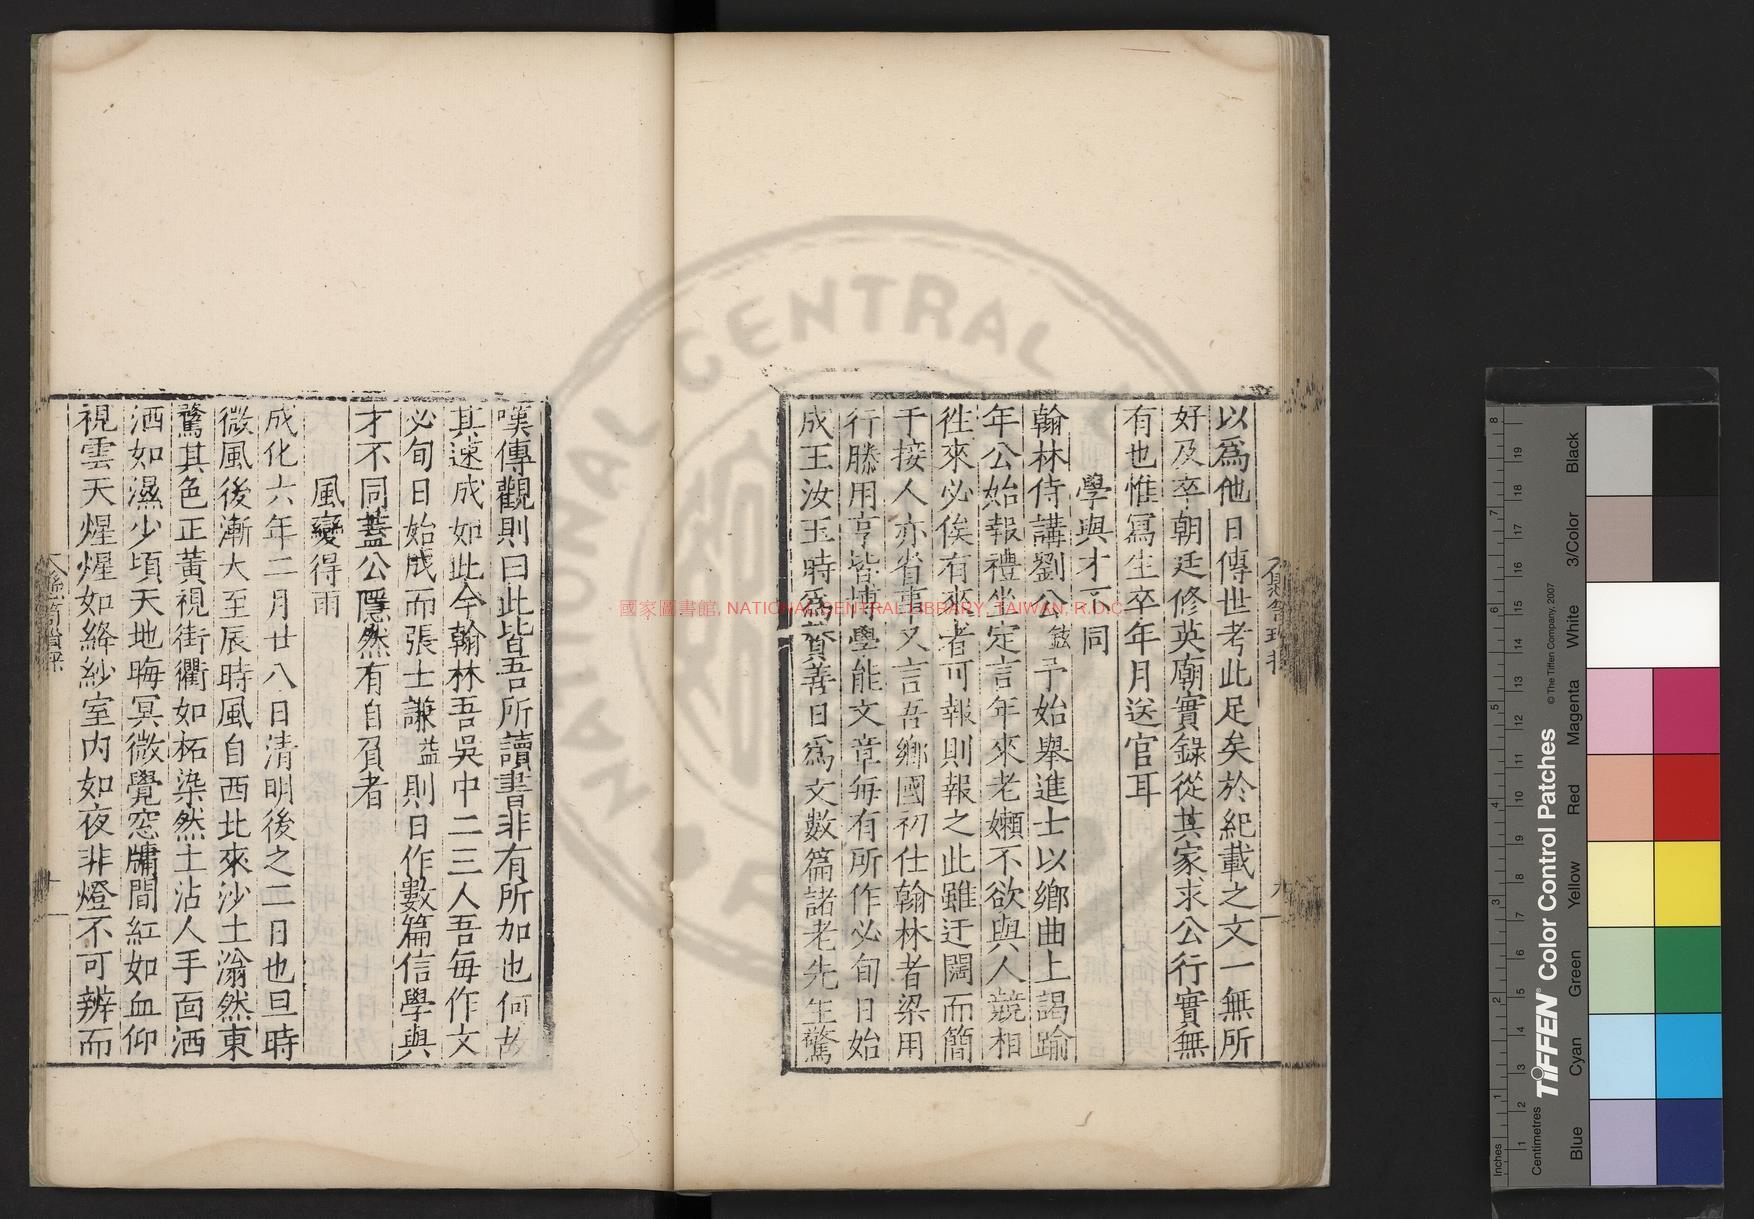 以爲他日傳世考此足矣於紀載之文一無所
好及卒朝廷修英廟實錄從其家求公行實無
有也惟寫生卒年月送官耳
學與才不同
翰林侍講劉公鉉予始舉進士以鄉曲上謁踰
年公始報禮坐定言年來老嬾不欲與人競相
徃來必俟有來者可報則報之此雖迂闊而簡
于接人亦省事又言吾鄉國初仕翰林者梁用
行滕用亨皆博學能文章每有所作必旬日始
成王汝玉時爲贊善日爲文數篇諸老先生驚
嘆傳觀則曰此皆吾所讀書非有所加也何故
其速成如此今翰林吾吳中二三人吾每作文
必旬日始成而張士謙益則日作數篇信學與
才不同蓋公隱然有自負者
風變得雨
成化六年二月廿八日清明後之二日也旦時
微風後漸大至辰時風自西北來沙土滃然東
驚其色正黃視街衢如柘染然土沾人手面洒
洒如濕少頃天地晦冥微覺窓牖間紅如血仰
視雲天煋煋如絳紗室内如夜非燈不可辨而
九
十
國家圖書館, NATIONAL CENTRAL LIBRARY, TAIWAN, R.O.C
NATIONAL CENTRAL
TIFFEN® Color Control Patches
© The Tiffen Company, 2007
Centimetres
Inches
Blue Cyan Green Yellow Red Magenta White 3/Color Black